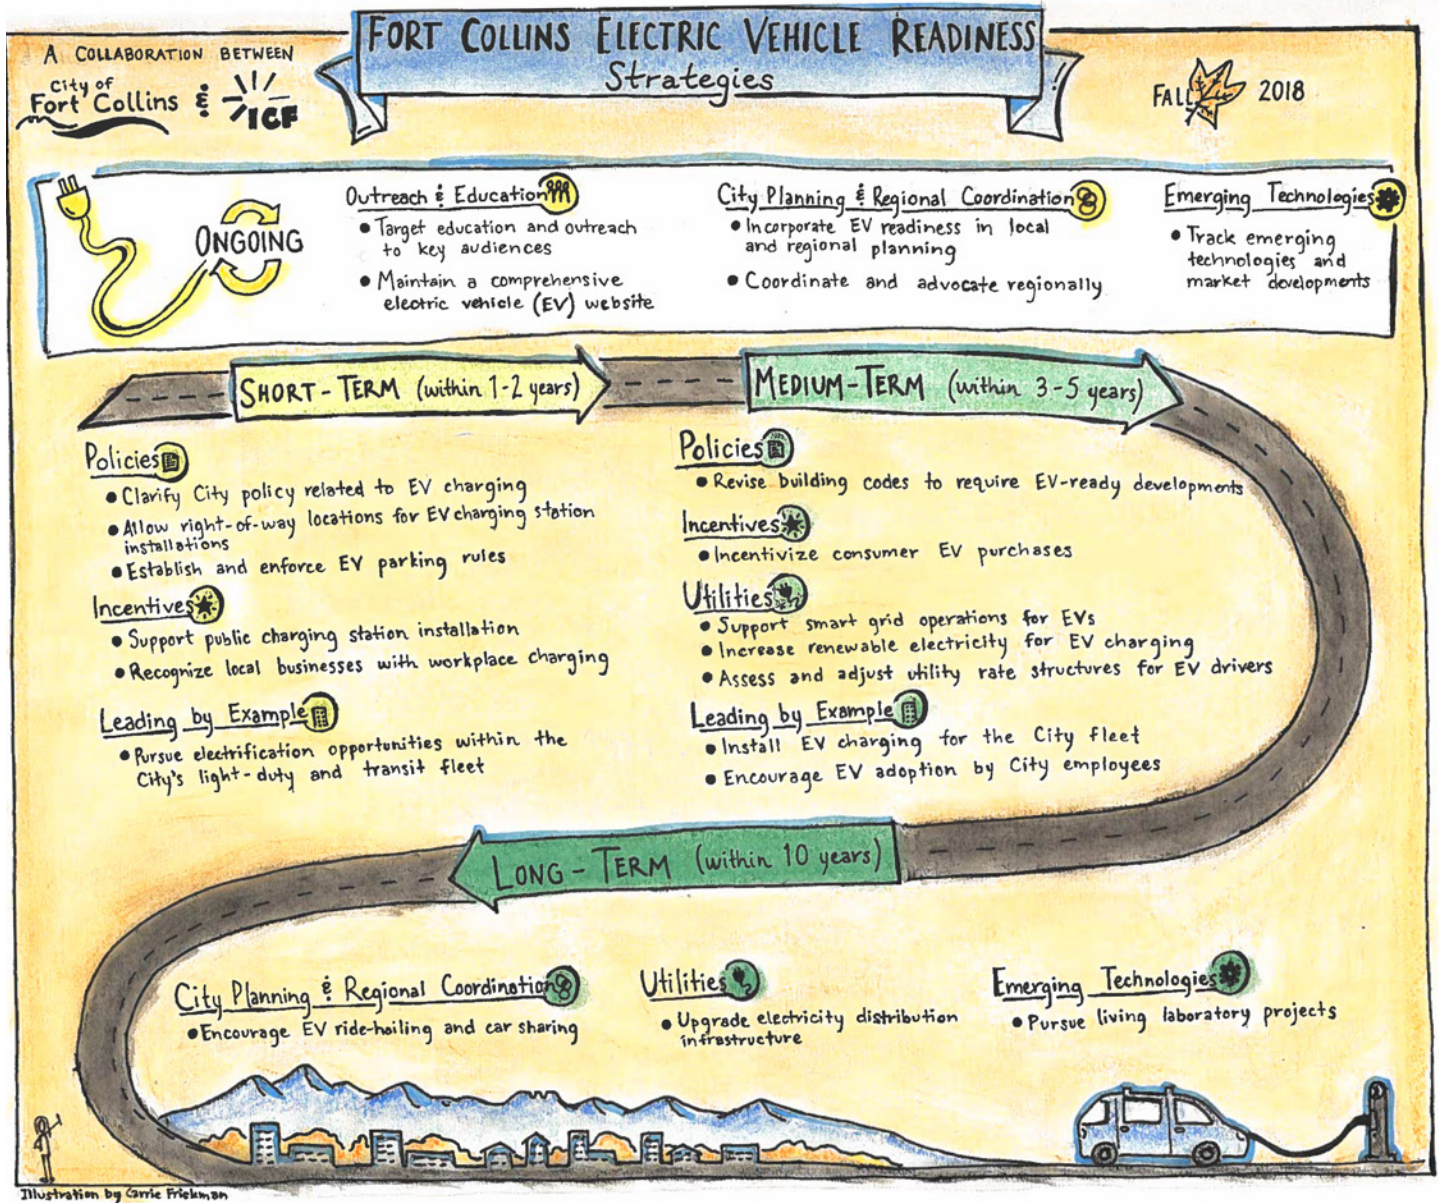 A COLLABORATION BETWEEN
City of
Fort Collins & ICF
FORT COLLINS ELECTRIC VEHICLE READINESS
Strategies
FALL 2018
ONGOING
Outreach & Education
• Target education and outreach
to key audiences
• Maintain a comprehensive
electric vehicle (EV) website
City Planning & Regional Coordination
• Incorporate EV readiness in local
and regional planning
• Coordinate and advocate regionally
Emerging Technologies
• Track emerging
technologies and
market developments
SHORT-TERM (within 1-2 years)
MEDIUM-TERM (within 3-5 years)
Policies
• Clarify City policy related to EV charging
• Allow right-of-way locations for EV charging station
installations
• Establish and enforce EV parking rules
Incentives
• Support public charging station installation
• Recognize local businesses with workplace charging
Leading by Example
• Pursue electrification opportunities within the
City's light-duty and transit fleet
Policies
• Revise building codes to require EV-ready developments
Incentives
• Incentivize consumer EV purchases
Utilities
• Support smart grid operations for EVs
• Increase renewable electricity for EV charging
• Assess and adjust utility rate structures for EV drivers
Leading by Example
• Install EV charging for the City fleet
• Encourage EV adoption by City employees
LONG-TERM (within 10 years)
City Planning & Regional Coordination
• Encourage EV ride-hailing and car sharing
Utilities
• Upgrade electricity distribution
infrastructure
Emerging Technologies
• Pursue living laboratory projects
Illustration by Carrie Frickman